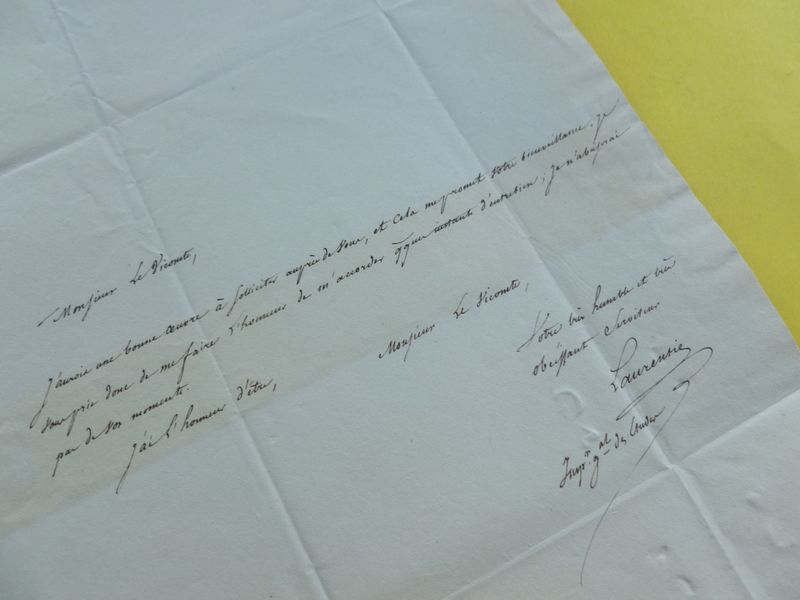 Monsieur Le Vicomte,
J'aurois une bonne œuvre à solliciter auprès de vous, et cela me promet votre bienveillance. Je
vous prie donc de me faire l'honneur de m'accorder qques instants d'entretien ; je n'abuserai
pas de vos moments.
J'ai l'honneur d'être,
Monsieur Le Vicomte,
Votre très humble et très
obéissant Serviteur
Laurentie
Inspr. gal des Études